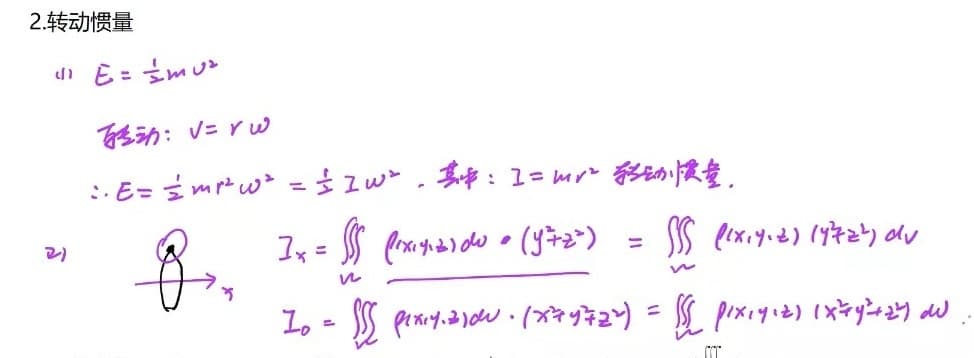 2.转动惯量
(1) E = ½mv²
转动: v = rω
∴ E = ½mr²ω² = ½Iω². 其中: I = mr² 转动惯量.
2)
x
Iₓ = ∭_Ω ρ(x,y,z)dv · (y²+z²) = ∭_Ω ρ(x,y,z)(y²+z²)dv
I₀ = ∭_Ω ρ(x,y,z)dv · (x²+y²+z²) = ∭_Ω ρ(x,y,z)(x²+y²+z²)dv.